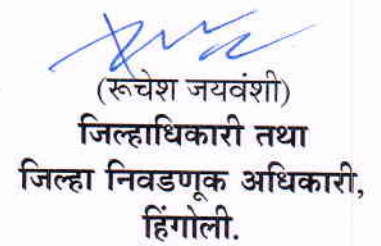 (रूचेश जयवंशी)
जिल्हाधिकारी तथा
जिल्हा निवडणूक अधिकारी,
हिंगोली.